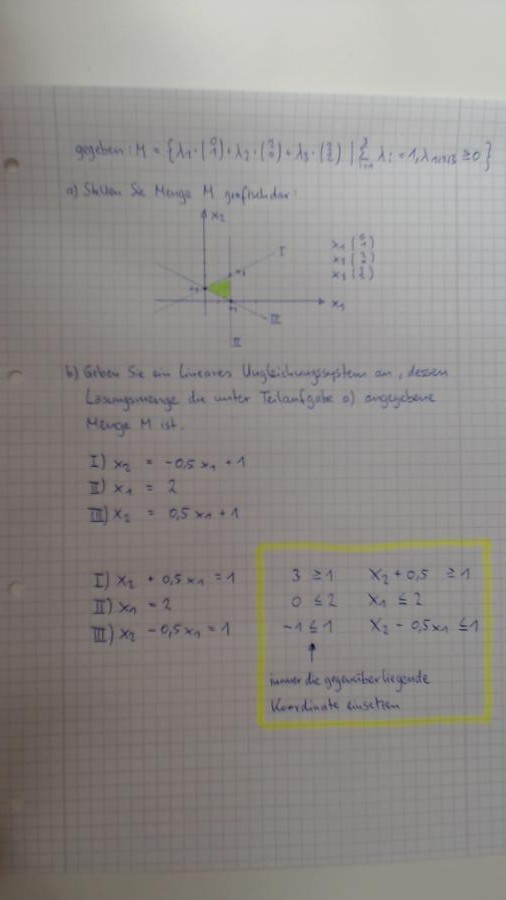 gegeben: M = { λ1 · (0 1) + λ2 · (2 0) + λ3 · (2 2) | 3 Σ i=1 λi = 1, λ1,2,3 ≥ 0 }
a) Stellen Sie Menge M grafisch dar:
x2
I
x1 (0 1)
x3 (2 2)
x1
III
II
b) Geben Sie ein Lineares Ungleichungssystem an, dessen
Lösungsmenge die unter Teilaufgabe a) angegebene
Menge M ist.
I) x2 = -0,5 x1 + 1
II) x1 = 2
III) x2 = 0,5 x1 + 1
I) x2 + 0,5 x1 = 1
II) x1 = 2
III) x2 - 0,5 x1 = 1
3 ≥ 1 x2 + 0,5 ≥ 1
0 ≤ 2 x1 ≤ 2
-1 ≤ 1 x2 - 0,5 x1 ≤ 1
immer die gegenüberliegende
Koordinate einsetzen